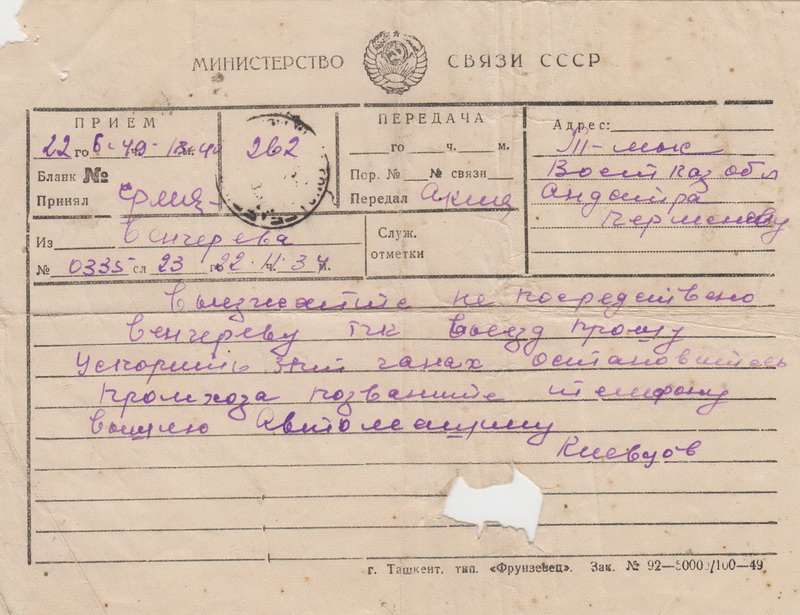 МИНИСТЕРСТВО СВЯЗИ СССР
ПРИЕМ
22 го 6 ч. 40 м.
Бланк №
Принял
262
ПЕРЕДАЧА
го ч. м.
Пор. № № связи
Передал
Адрес:
Вост Каз обл
Из Венчерева
№ 0335 сл 23 го 22 ч. м.
Служ.
отметки
Выезжайтие не посредствено
Венчереву тчк выезд прошу
Ускорить зпт остановитесь
промхоза позваните телефону
вышлю Автомашину
Киевцов
г. Ташкент. тип. «Фрунзевец». Зак. № 92—50000/100—49